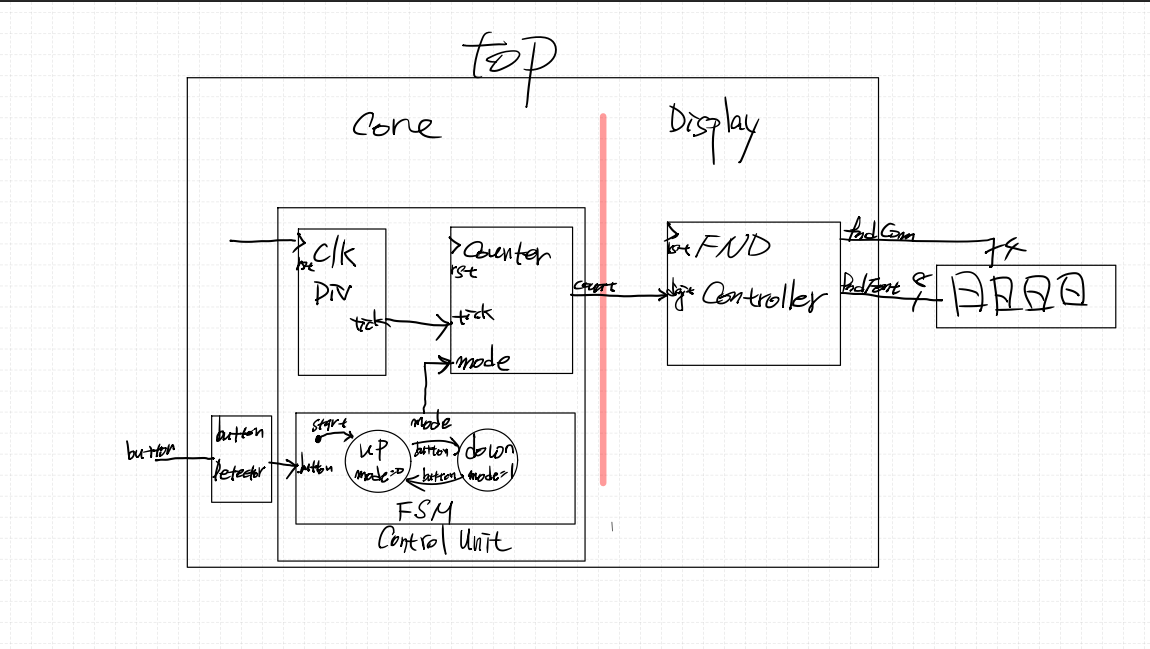 top
Core
Display
Clk
rst
DIV
tick
Counter
rst
tick
mode
count
rst
FND
digit
Controller
fndCom
4
fndFont
8
button
button
Detector
button
start
UP
mode=0
mode
button
button
down
mode=1
FSM
Control Unit